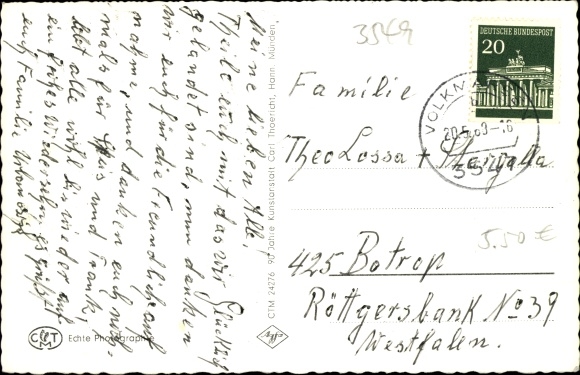 Meine lieben Alle,
Theile euch mit das wir Glücklich
gelandet sind, nun danken
wir euch für die Freundliche auf
nahme, und danken euch noch
mals für Speis und Trank,
lebt alle wohl bis wieder auf
ein frohes Wiedersehn es grüßt
euch Familie
CTM 24276 90 Jahre Kunstanstalt Carl Thoericht, Hann. Münden
CTM Echte Photographie
Agfa
3549
DEUTSCHE BUNDESPOST
20
VOLKMA
20.5.69-16
3549
Familie
Theo Lossa +
425 Botrop
Röttgersbank No 39
Westfalen.
5.50 €